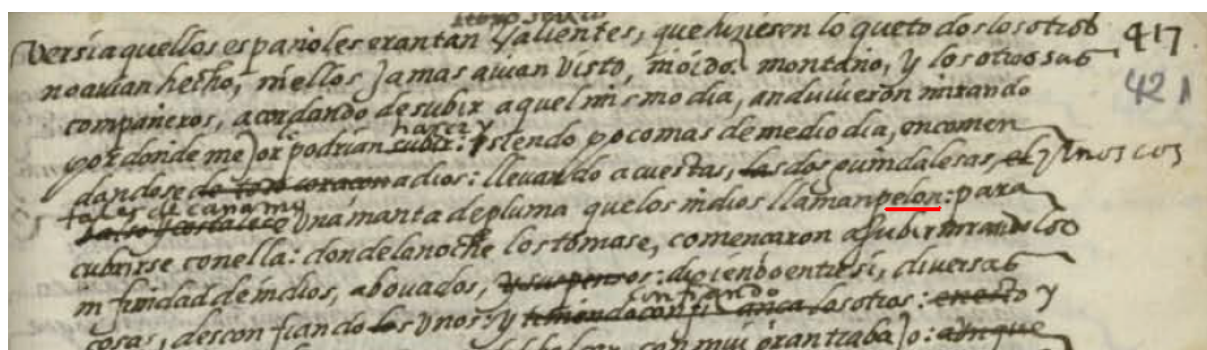 Versi aquellos españoles eran tan valientes, que hiziesen lo que todos los otros 417
no auian hecho, ni ellos Jamas auian visto, ni oido. montaño, y los otros sus 421
compañeros, acordando de subir aquel mismo dia, anduuieron mirando
hazer y
por donde mejor podrian subir: y siendo poco mas de medio dia, encomen
dandose de todo coraçon a dios: lleuando a cuestas, las dos guindalesas, el y unos cos
tales de cañamo
balso y costales Una manta de pluma que los indios llaman pelon: para
cubrirse con ella: donde la noche los tomase, començaron a subir mirandolos
infinidad de indios, abouados, y suspensos: diziendo entre si, diuersas
confiando
cosas, desconfiando los Unos: y teniendo confiança los otros: y
con mui gran trabajo: aunque